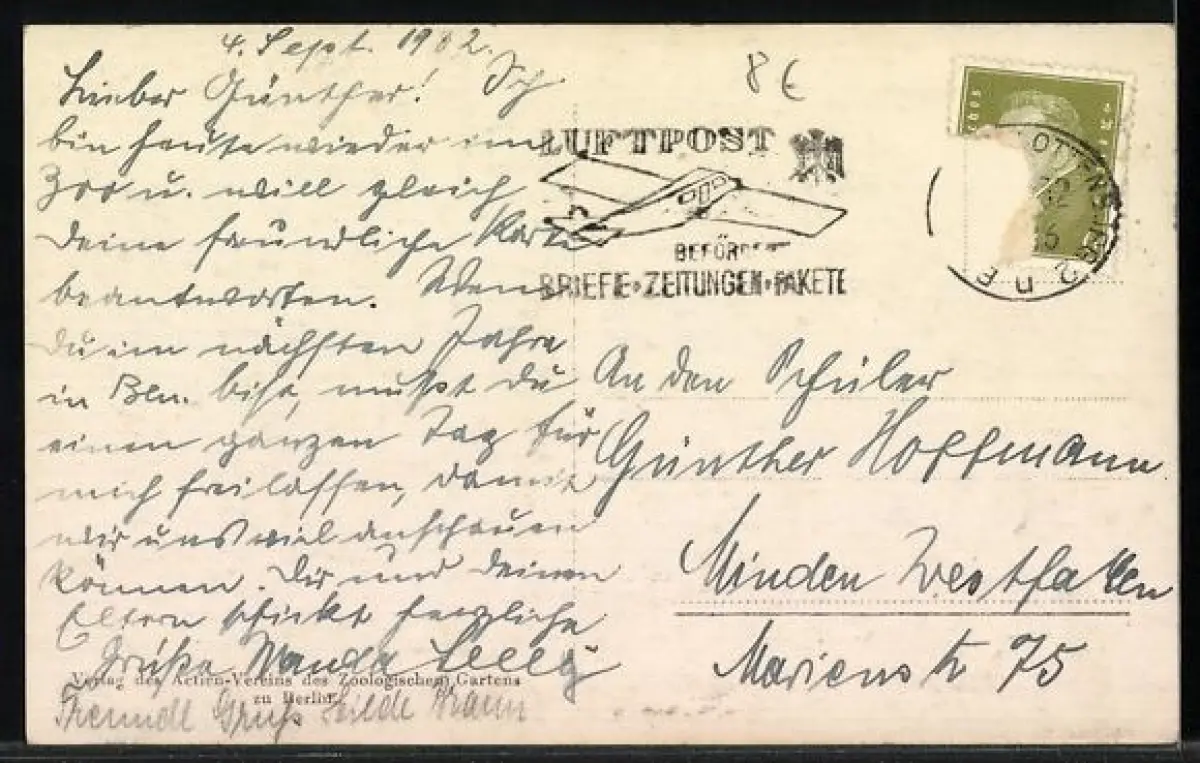 4. Sept. 1932.
Lieber Günther! Ich
bin heute wieder im
Zoo u. will gleich
deine freundliche Karte
beantworten. Wenn
du im nächsten Jahre
in Bln. bist, mußt du
einen ganzen Tag für
mich freilassen, damit
wir uns viel anschauen
können. Dir und deinen
Eltern schickt herzliche
Grüße Wanda
Freundl Gruß Hilde
Verlag des Actien-Vereins des Zoologischen Gartens
zu Berlin.
8 €
LUFTPOST
BEFÖRDERT
BRIEFE·ZEITUNGEN·PAKETE
An den Schüler
Günther Hoffmann
Minden Westfalen
Marienstr 75